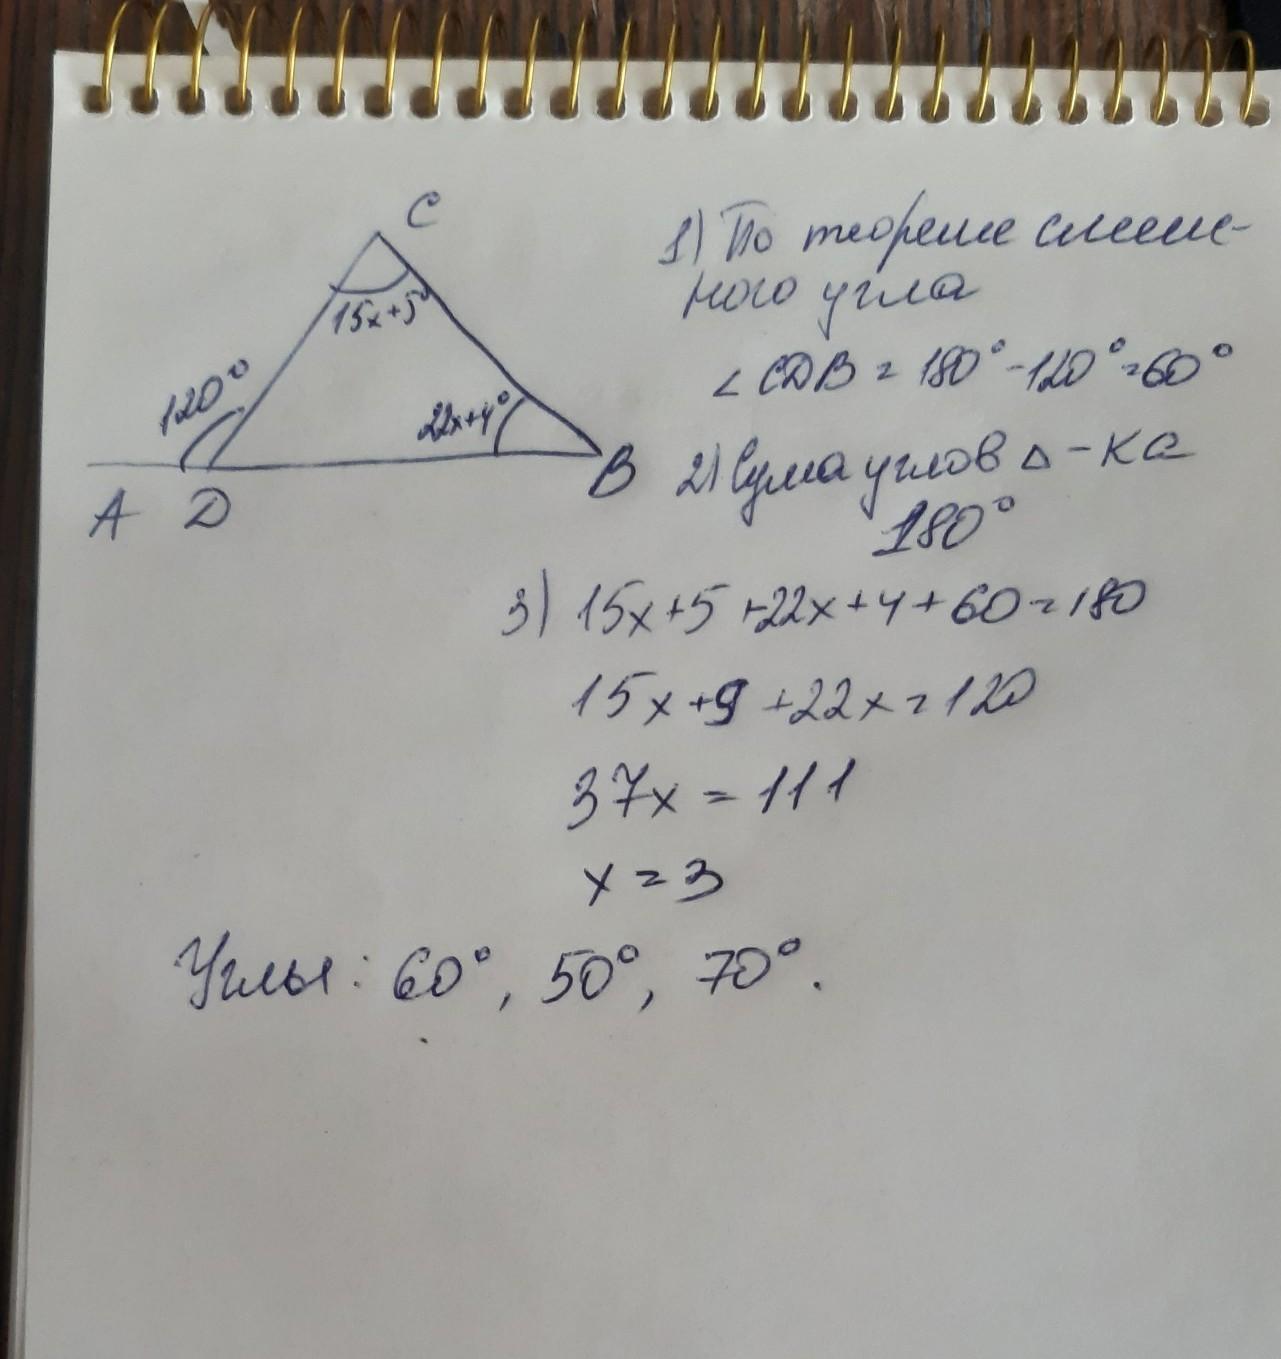 C
1) По теореме смеж-
ного угла
15x+5°
120°
∠CDB = 180° - 120° = 60°
22x+4°
A D
B
2) Сума углов △ - ка
180°
3) 15x+5+22x+4+60=180
15x+9+22x=120
37x = 111
x = 3
Углы: 60°, 50°, 70°.